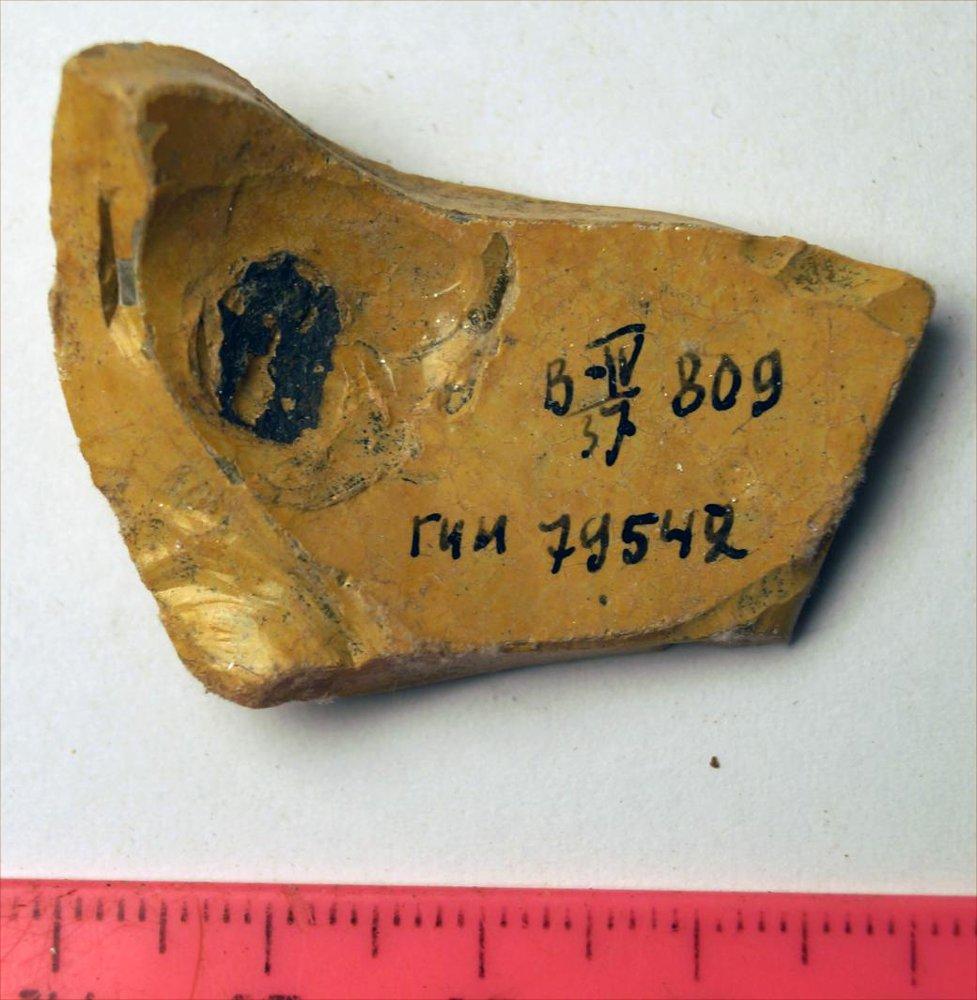 В-IV/37 809
ГИИ 79542